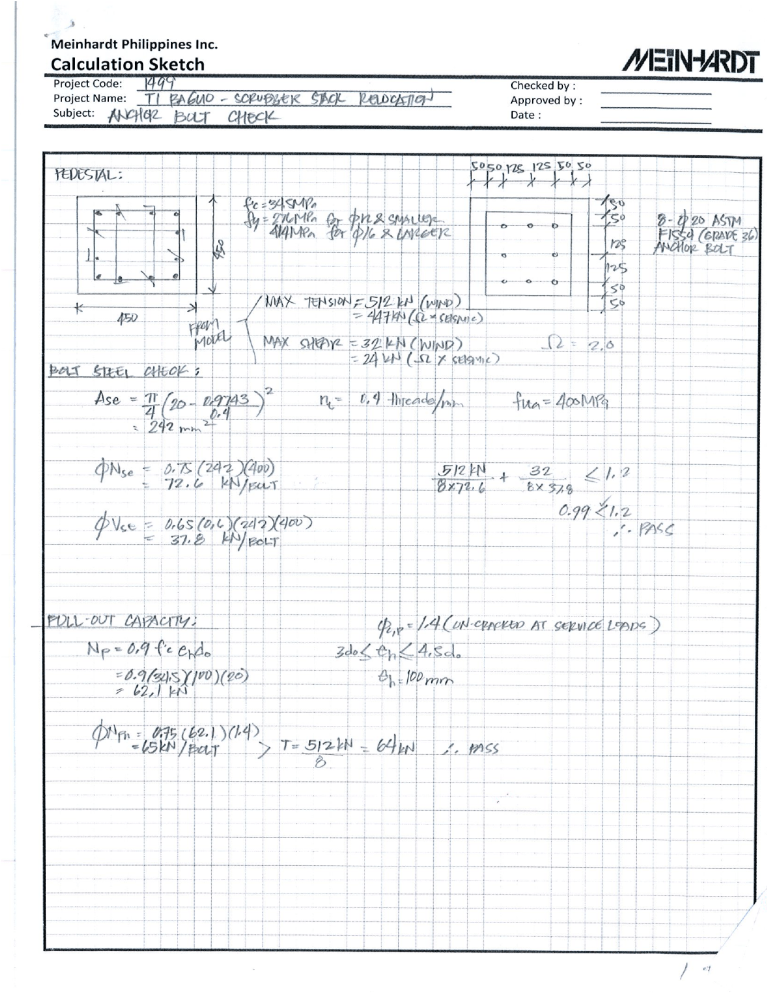 Meinhardt Philippines Inc.
Calculation Sketch
MEINHARDT
Project Code: 1499
Project Name: TI BAGUIO - SCRUBBER STACK RELOCATION
Subject: ANCHOR BOLT CHECK
Checked by :
Approved by :
Date :
PEDESTAL:
f'c = 34.5MPa
fy = 276MPa for φ12 & SMALLER
414MPa for φ16 & LARGER
450
450
50 50 125 125 50 50
50
50
125
125
50
50
8- φ20 ASTM
F1554 (GRADE 36)
ANCHOR BOLT
FROM
MODEL
MAX TENSION = 512 kN (WIND)
= 447kN (Ω x SEISMIC)
MAX SHEAR = 32 kN (WIND)
= 24 kN (Ω X SEISMIC)
Ω = 2.0
BOLT STEEL CHECK:
Ase = π/4 (20 - 0.9743/0.4)²
= 242 mm²
nt = 0.4 threads/mm
futa = 400MPa
φNse = 0.75(242)(400)
= 72.6 kN/BOLT
512 kN/8x72.6 + 32/8x37.8 ≤ 1.2
0.99 < 1.2
∴ PASS
φVse = 0.65(0.6)(242)(400)
= 37.8 kN/BOLT
PULL-OUT CAPACITY:
φ2,p = 1.4 (UN-CRACKED AT SERVICE LOADS)
Np = 0.9 f'c eh do
3do ≤ eh ≤ 4.5do
= 0.9(34.5)(100)(20)
= 62.1 kN
eh = 100 mm
φNpn = 0.75(62.1)(1.4)
= 65kN/BOLT > T = 512 kN/8 = 64 kN ∴ PASS